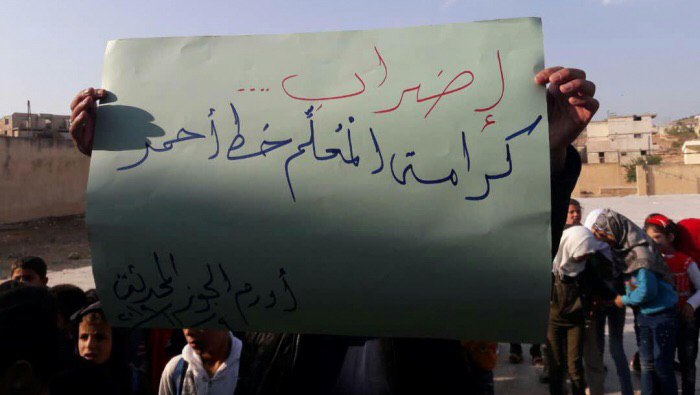 إضراب ...
كرامة المُعلّم خط أحمر
أورم الجوز